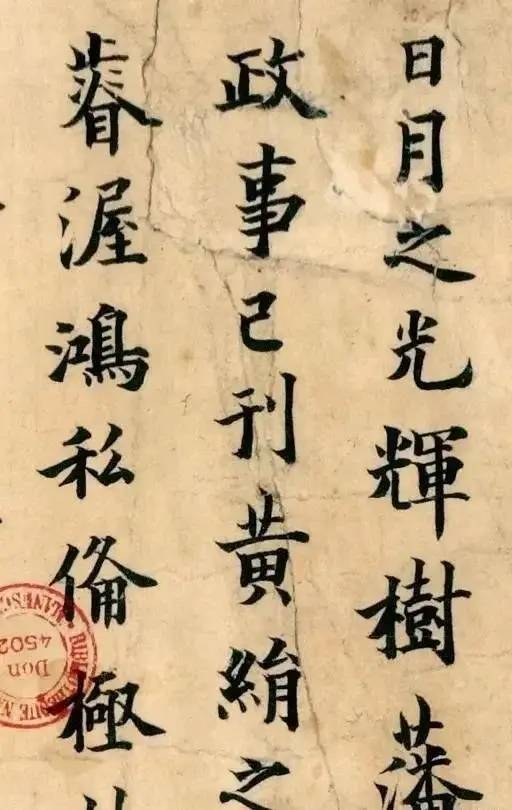 日月之光輝樹藩
政事已刊黃絹之
渥鴻私偹極
Don
4502